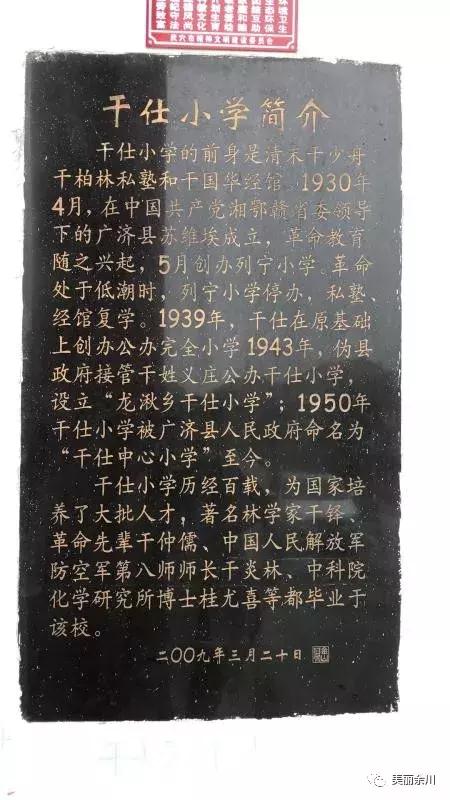 环境卫生
生态环保
团结互助
家庭和睦
敬老爱幼
计划生育
科教文化
文明风尚
遵纪守法
劳动致富
武穴市精神文明建设委员会
干仕小学简介
干仕小学的前身是清末干少舟
干柏林私塾和干国华经馆 1930年
4月，在中国共产党湘鄂赣省委领导
下的广济县苏维埃成立，革命教育
随之兴起，5月创办列宁小学。革命
处于低潮时，列宁小学停办，私塾、
经馆复学。1939年，干仕在原基础
上创办公办完全小学 1943年，伪县
政府接管干姓义庄公办干仕小学，
设立“龙湫乡干仕小学”；1950年
干仕小学被广济县人民政府命名为
“干仕中心小学”至今。
干仕小学历经百载，为国家培
养了大批人才，著名林学家干铎、
革命先辈干仲儒、中国人民解放军
防空军第八师师长干炎林、中科院
化学研究所博士桂尤喜等都毕业于
该校。
二〇〇九年三月二十日
美丽余川